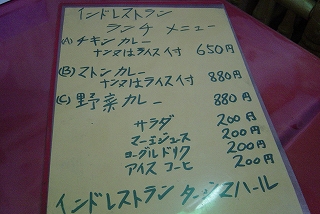 インドレストラン
ランチ メニュー
(A) チキン カレー
ナン又はライス付 650円
(B) マトン カレー
ナン又はライス付 880円
(C) 野菜 カレー 880円
サラダ 200円
マーユジュース 200円
ヨーグルドリク 200円
アイス コーヒ 200円
インドレストラン タージマハール